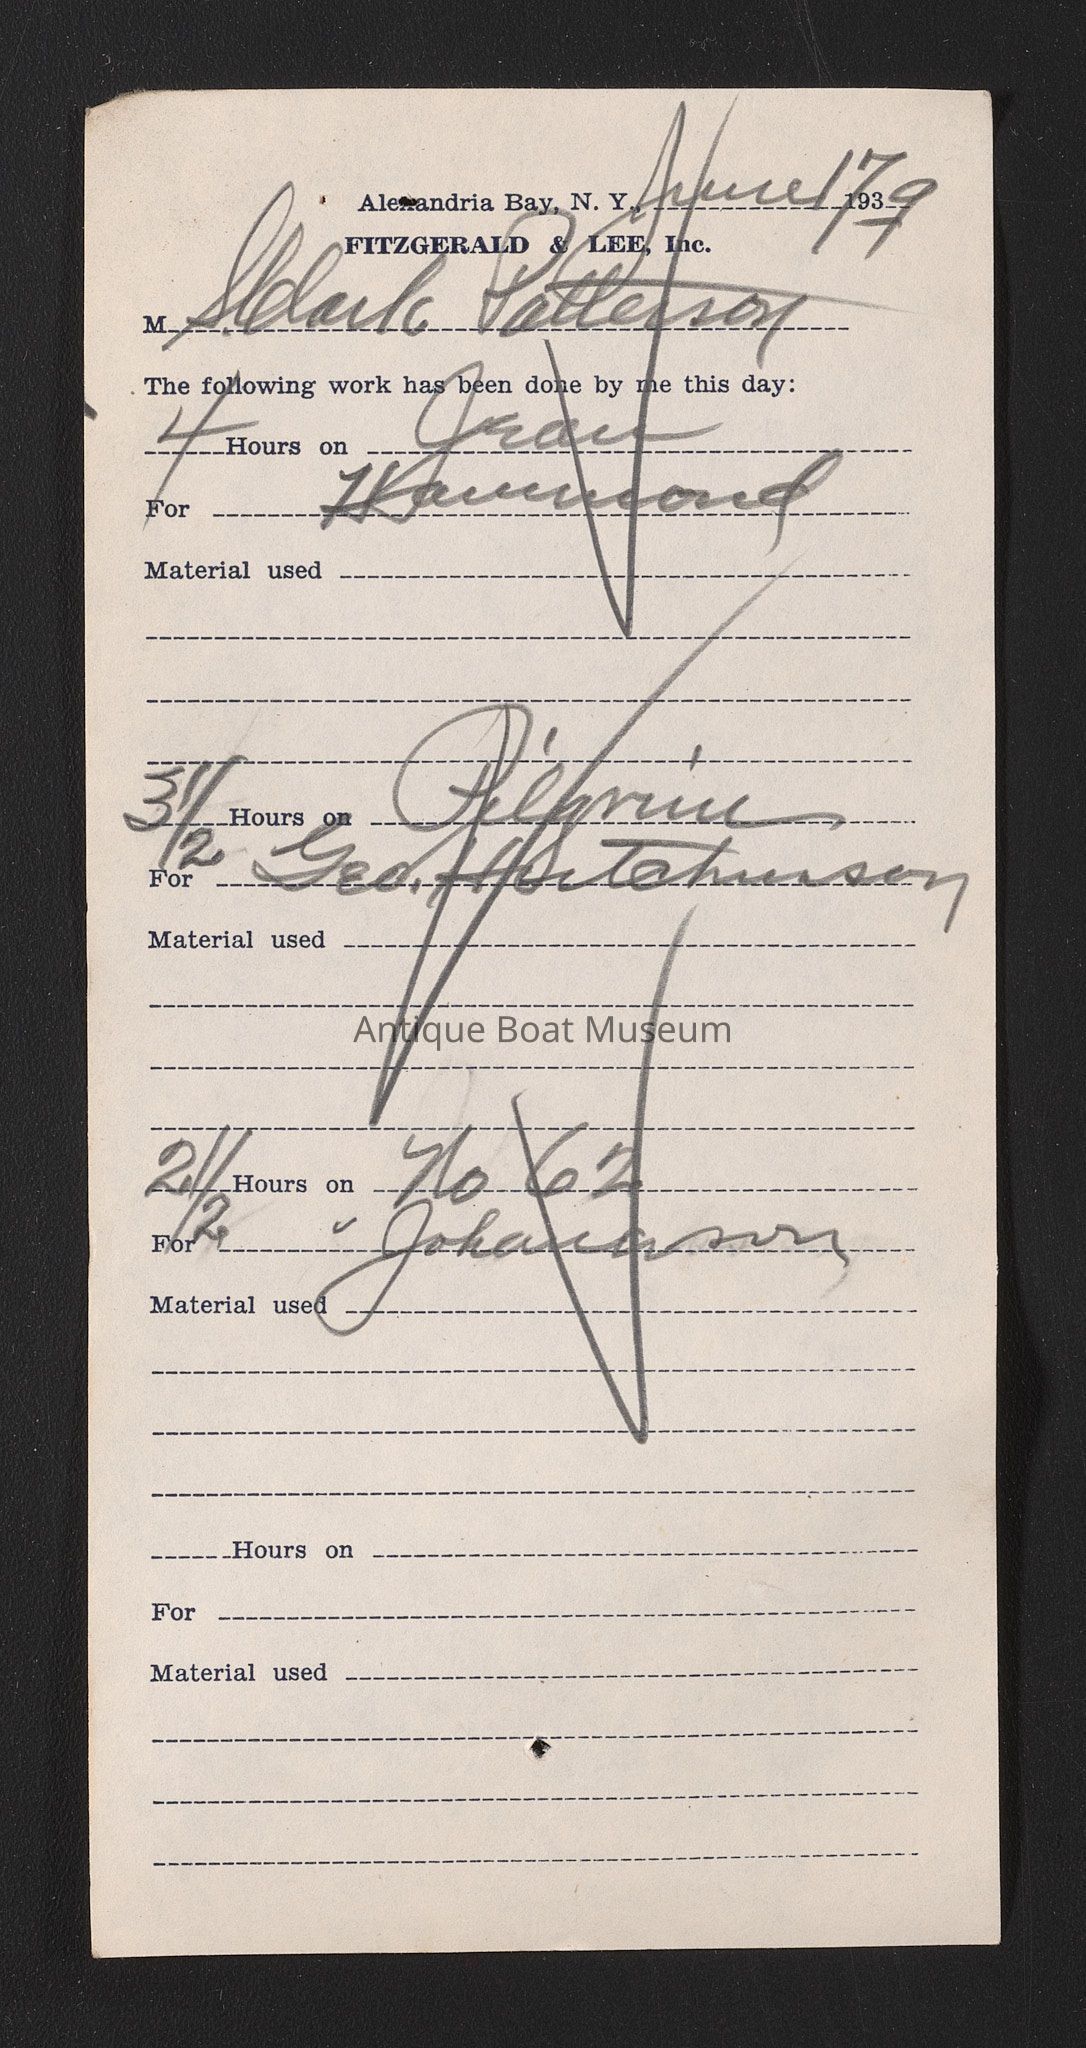 Alexandria Bay, N. Y., June 17 1939
FITZGERALD & LEE, Inc.
M S. Clark Patterson
The following work has been done by me this day:
4 Hours on Jean
For Hammond
Material used
3 1/2 Hours on Pilgrim
For Geo. Hutchinson
Material used
Antique Boat Museum
2 1/2 Hours on No 62
For " Johanson
Material used
Hours on
For
Material used